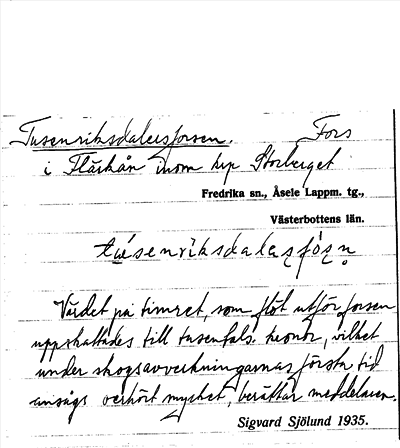 Tusenriksdalersforsen. Fors
i Flärkån inom krp Storberget
Fredrika sn., Åsele Lappm. tg.,
Västerbottens län.
tu̍senriksdalasfós̩n̥
Värdet på timret, som flöt utför forsen
uppskattades till tusentals kronor, vilket
under skogsavverkningarnas första tid
ansågs oerhört mycket, berättar meddelaren.
Sigvard Sjölund 1935.